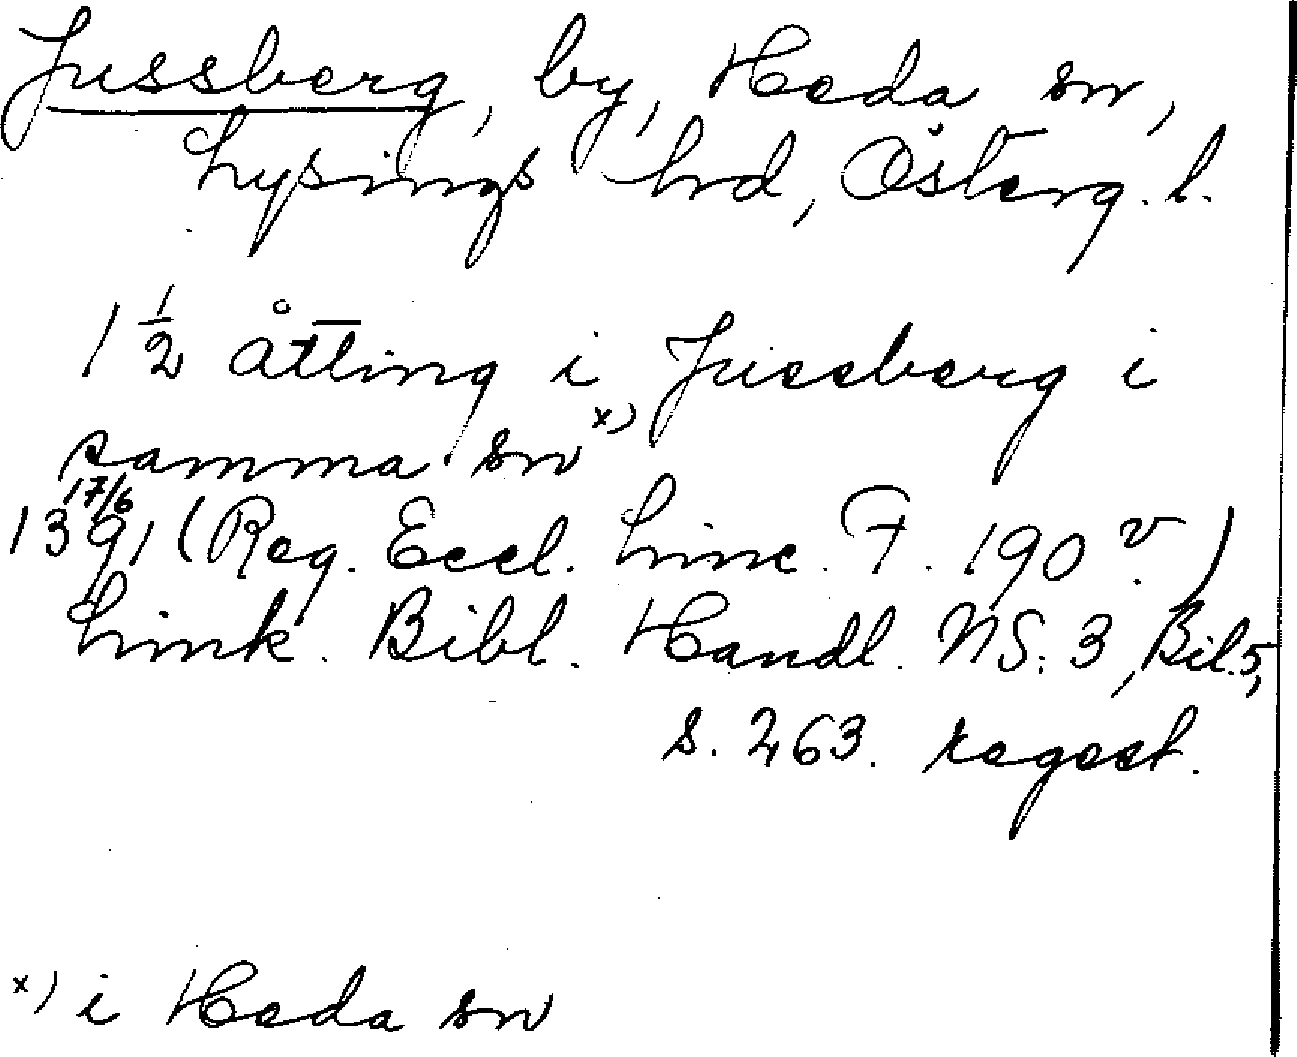 Jussberg, by, Heda sn,
Lysings hd, Österg. l.
1 1/2 åttling i Jussberg i
samma sn x)
17/6
1391 (Reg. Eccl. Linc. F. 190 v.)
Link. Bibl. Handl. NS. 3, Bil. 5,
s. 263. regest.
x) i Heda sn